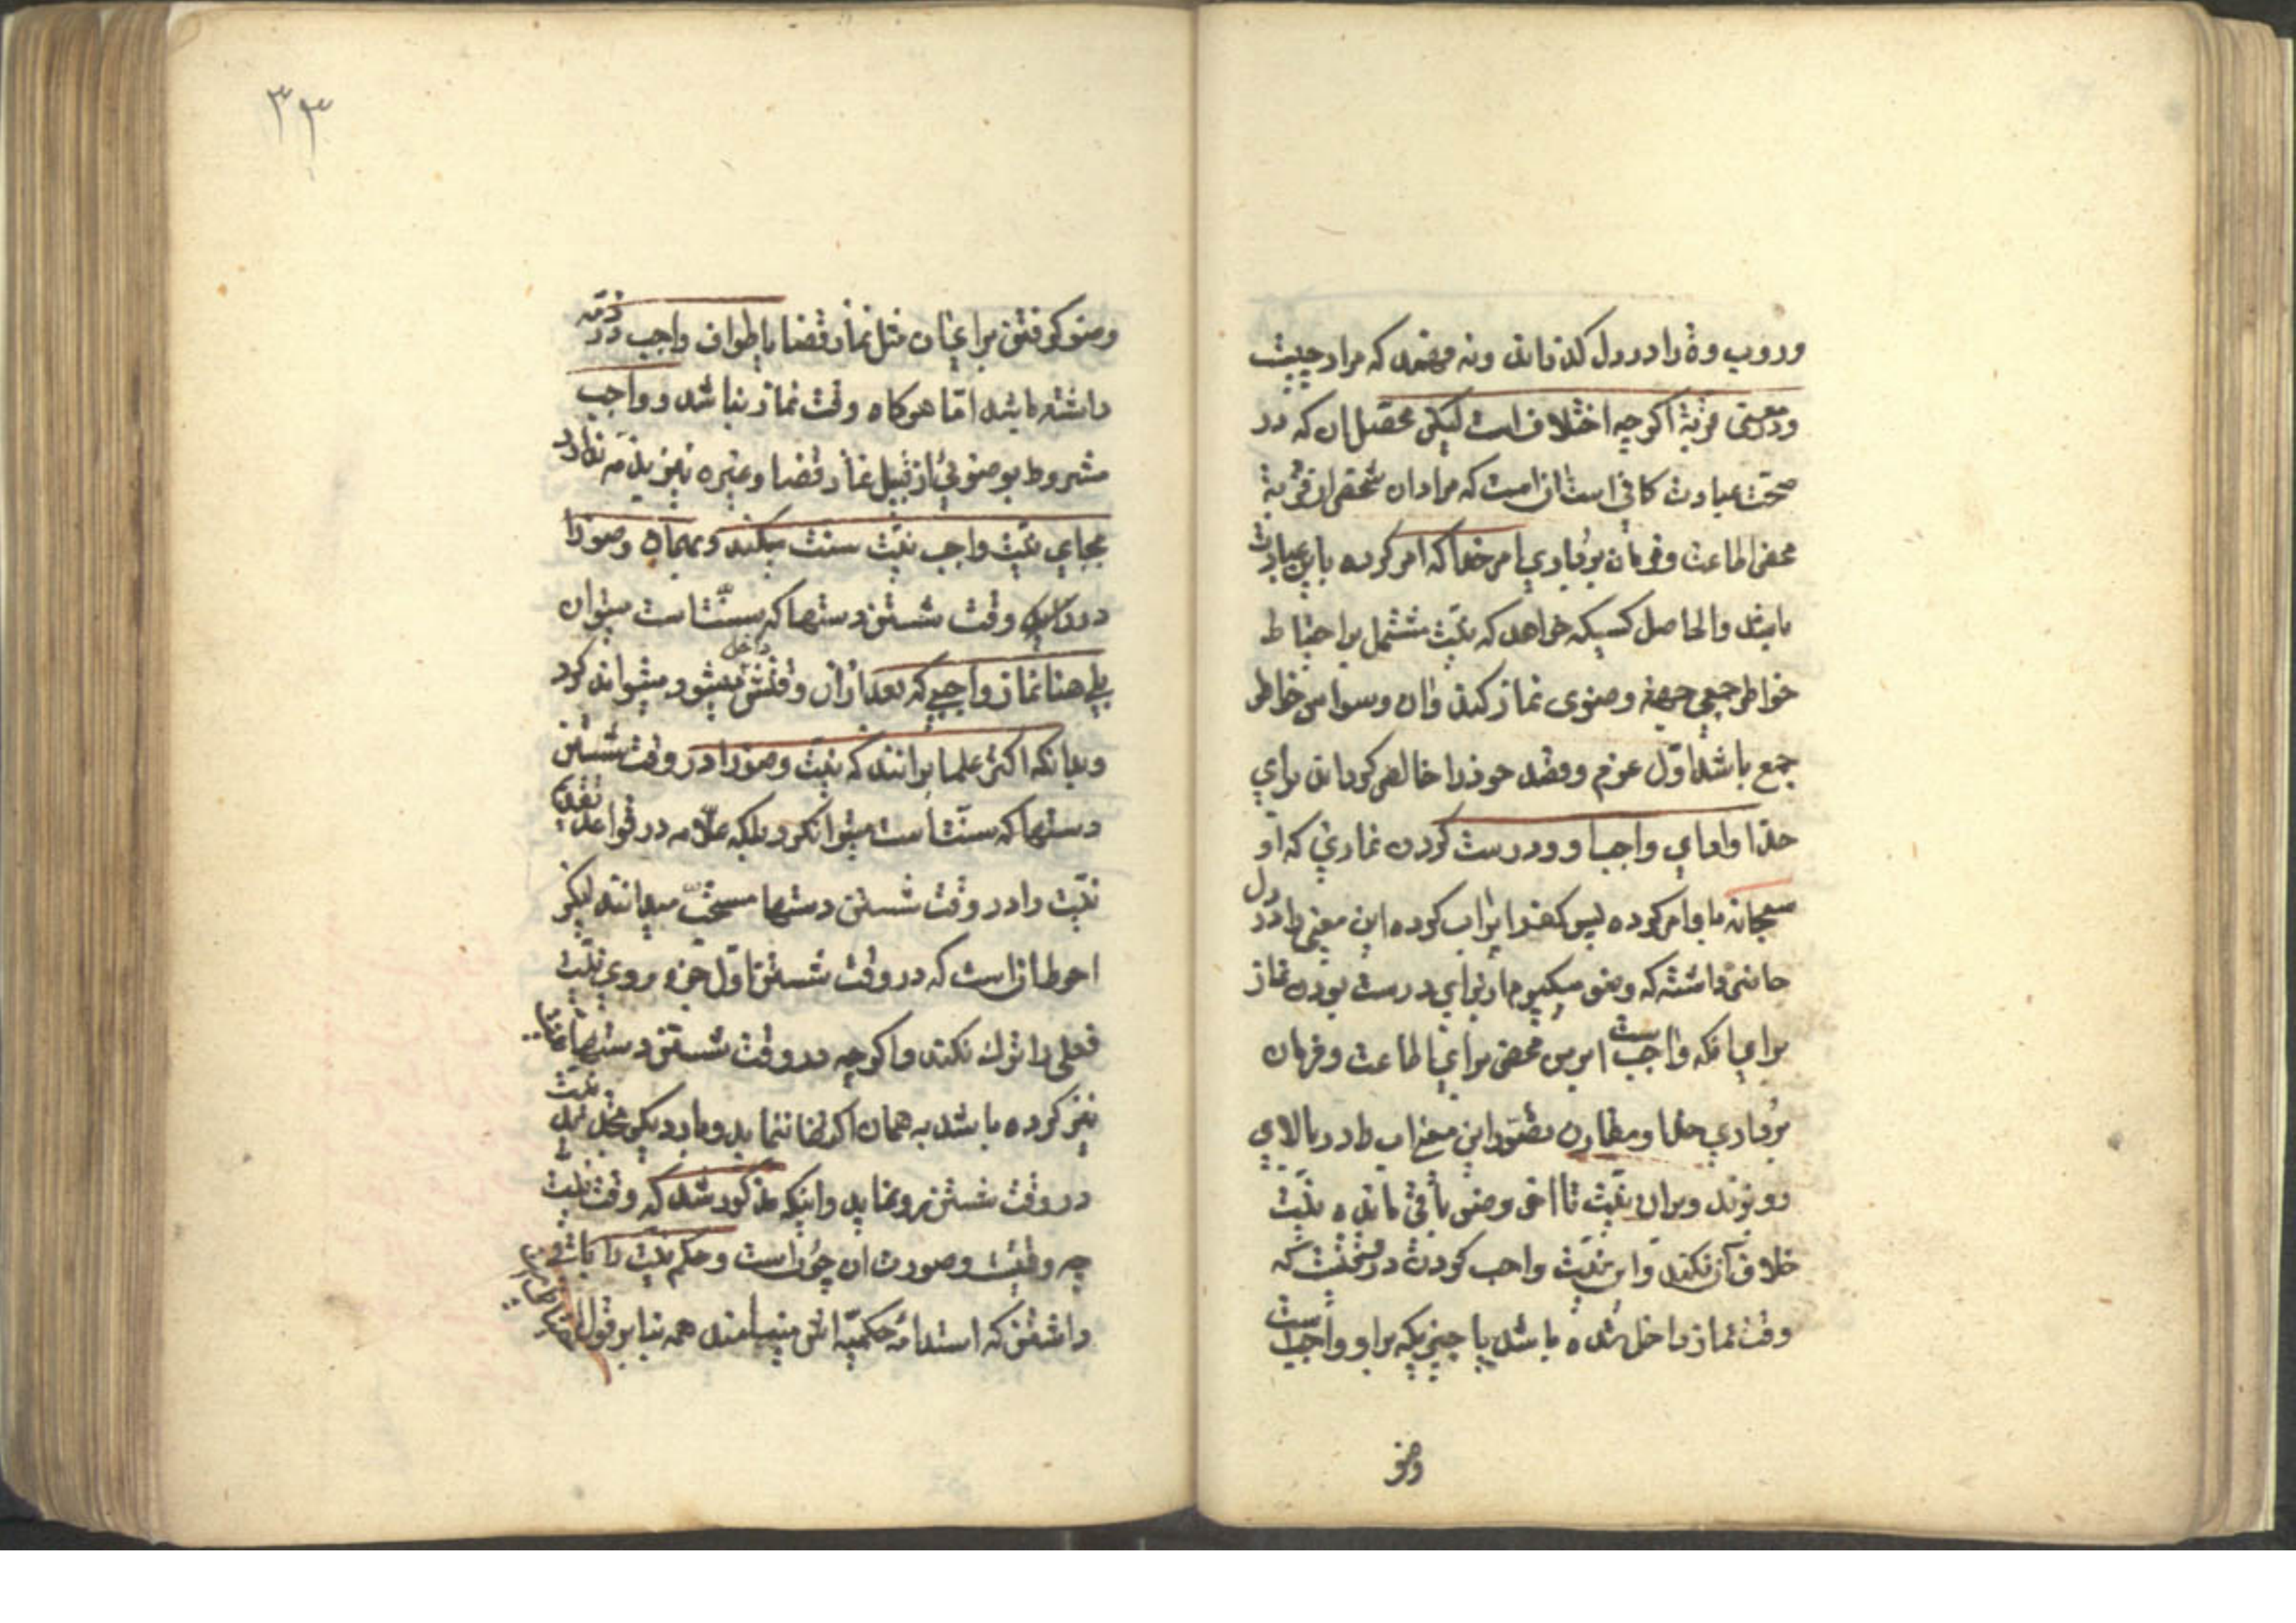 و روب وة را در دل گذراند و نه فهمد که مراد چیست
و در معنی قربة اگر چه اختلاف است لیکن محصّل ان که در
صحّت عبادت کافی است ان است که مراد ان شخص از قربة
محض اطاعت و فرمان بُرداری امر خدا که امر کرده باین عبادت
باشد والحاصل کسیکه خواهد که نیّت مشتمل بر احتیاط
خواطر جمعی وضوی نماز کند و ان وسواس خاطر
جمع باشد اوّل عزم و قصد خود را خالص کرداند برای
خدا و ادای واجب او و درست کردن نمازی که او
سبحانه باو امر کرده پس کف را پر اب کرده این معنی را در دل
داشته که وضو میکیرم از برای درست بودن نماز
برای انکه واجب است این بس محض برای اطاعت و فرمان
بُرداری خدا و مقارن تصوّر این معنی اب را در بالای
رو بریزد و بران نیّت تا اخر وضو باقی مانده نیّت
خلاف آن نکند و این نیّت واجب کردن در وقتیست که
وقت نماز داخل شده باشد یا چیزیکه بر او واجبست
وضو
۳۳
وضو کرفتن برای ان مثل نماز قضا یا طواف واجب در ذمّه
داشته باشد امّا هرکاه وقت نماز نباشد و واجب
مشروط بوضوئی از قبیل نماز قضا و غیره نیز بذمّه ندارد
بجای نیّت واجب نیّت سنت میکند و بهمان وضو را
در وقت شستن دستها که سنّت است میتوان
بلی هنا نماز واجبی که بعد از ان وقتش داخل میشود میتواند کرد
و بدانکه اکثر علما برانند که نیّت وضو را در وقت شستن
دستها که سنّت است میتوان کرد بلکه علّامه در قواعد تقدیم
نیّت را در وقت شستن دستها مستحبّ میدانند لیکن
احوط ان است که در وقت شستن اوّل جزء روی نیّت
فعلی را ترک نکند و اگر چه در وقت شستن دستها
نیز کرده باشد به همان اکتفا ننماید و بار دیکر تجدید نیّت
در وقت شستن رو نماید و اینکه مذکور شد که وقت نیّت
چه وقتست و صورت ان چُونست و حکم نیّت را باقی
داشتن که استدامهٔ حکمیّه اش مینامند همه بنا بر قول